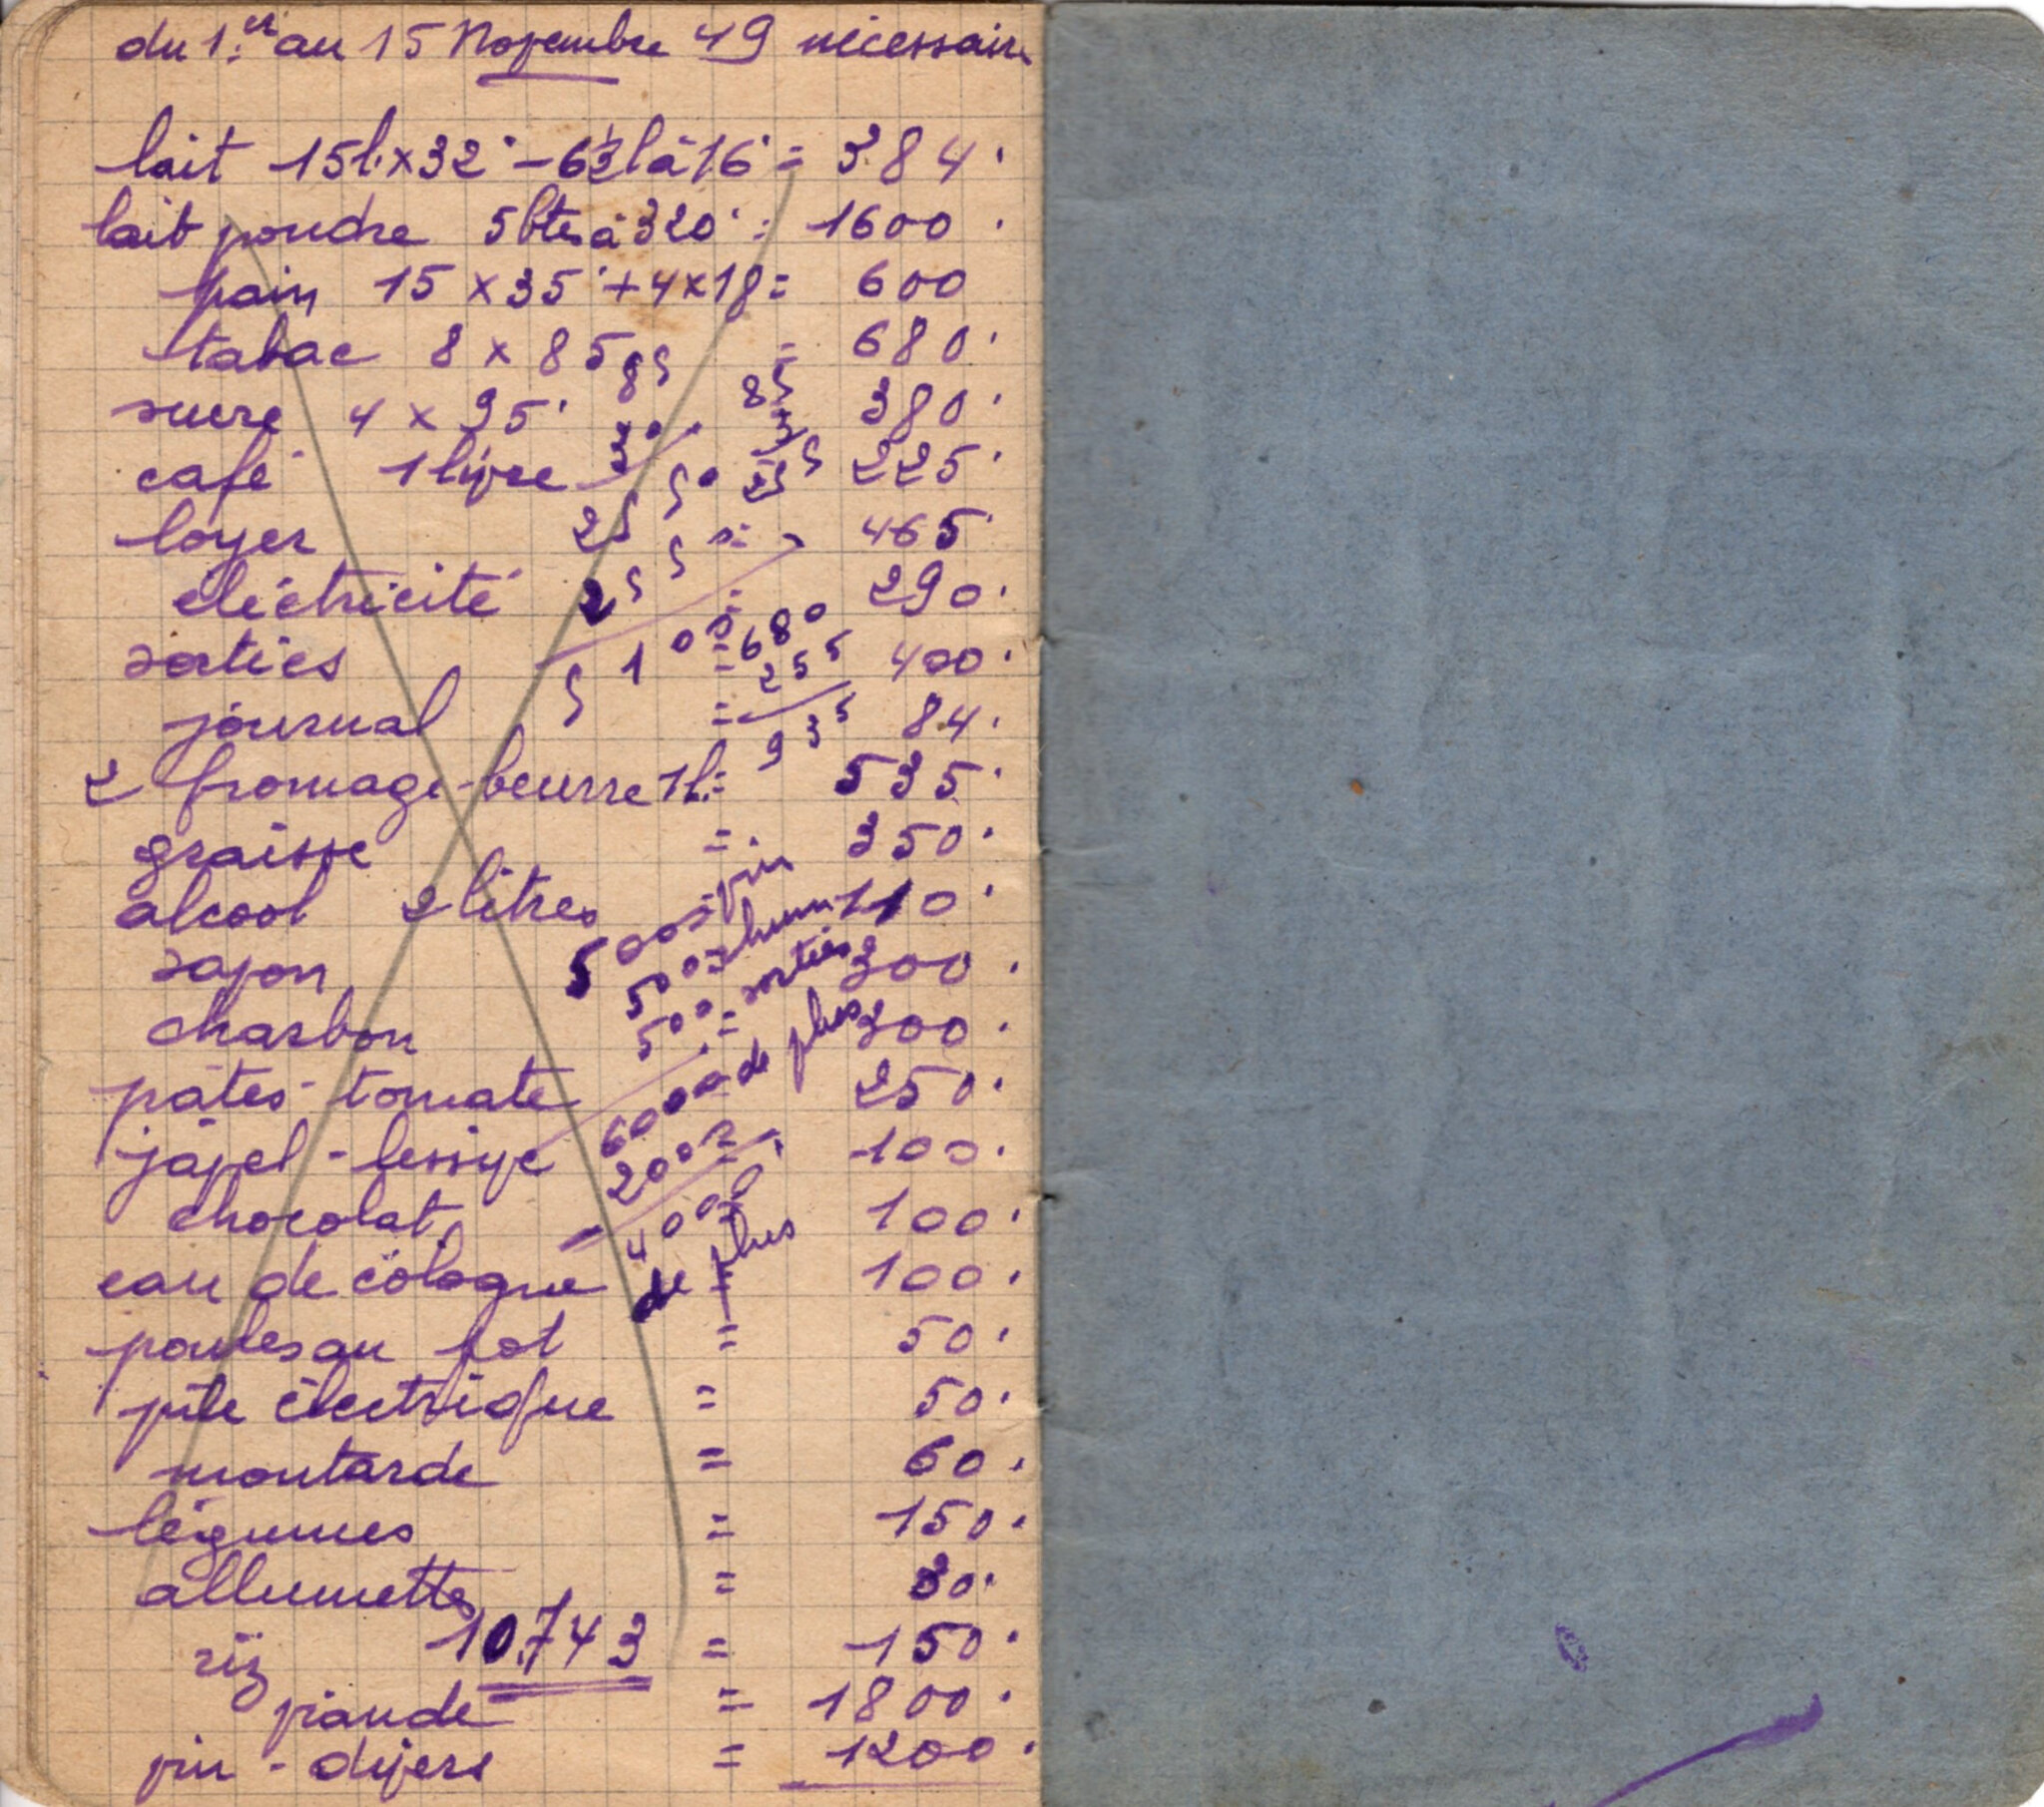 du 1.er au 15 Novembre 49 nécessaire
lait 15l. x 32 - 6 ½ l à 16 = 384
lait poudre 5 btes à 320 = 1600
pain 15 x 35 + 4 x 18 = 600
tabac 8 x 85 = 680
sucre 4 x 95 380
café 1 livre 225
loyer = 465
éléctricité = 290
sorties = 400
journal = 84
2 fromage-beurre 1l. = 535
graisse = 350
alcool 2 litres 110
savon 300
charbon = 300
pâtes - tomate 250
javel - lessive 100
chocolat 100
eau de cologne = 100
poule au pot = 50
pile électrique = 50
moutarde = 60
légumes = 150
allumettes = 30
riz = 150
viande = 1800
vin - divers = 1200
10.743
85
30
85
3
255
25
50
25
5
5100
680
255
935
500 = vin
500 = rhum
500 = sorties
6000 de plus
2000
4000
de plus